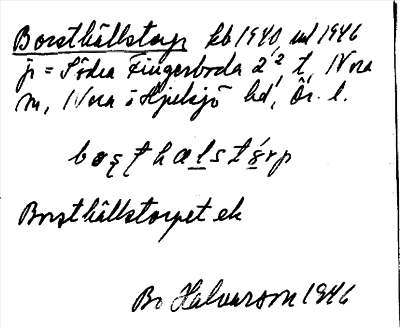 Borsthållstorp kb 1940, ul 1946
p = Södra Fingerboda 2², t, Nora
m, Nora o Hjulsjö hd, Ör. l.
Borsthållstorpet ek
Bo Halvarson 1946